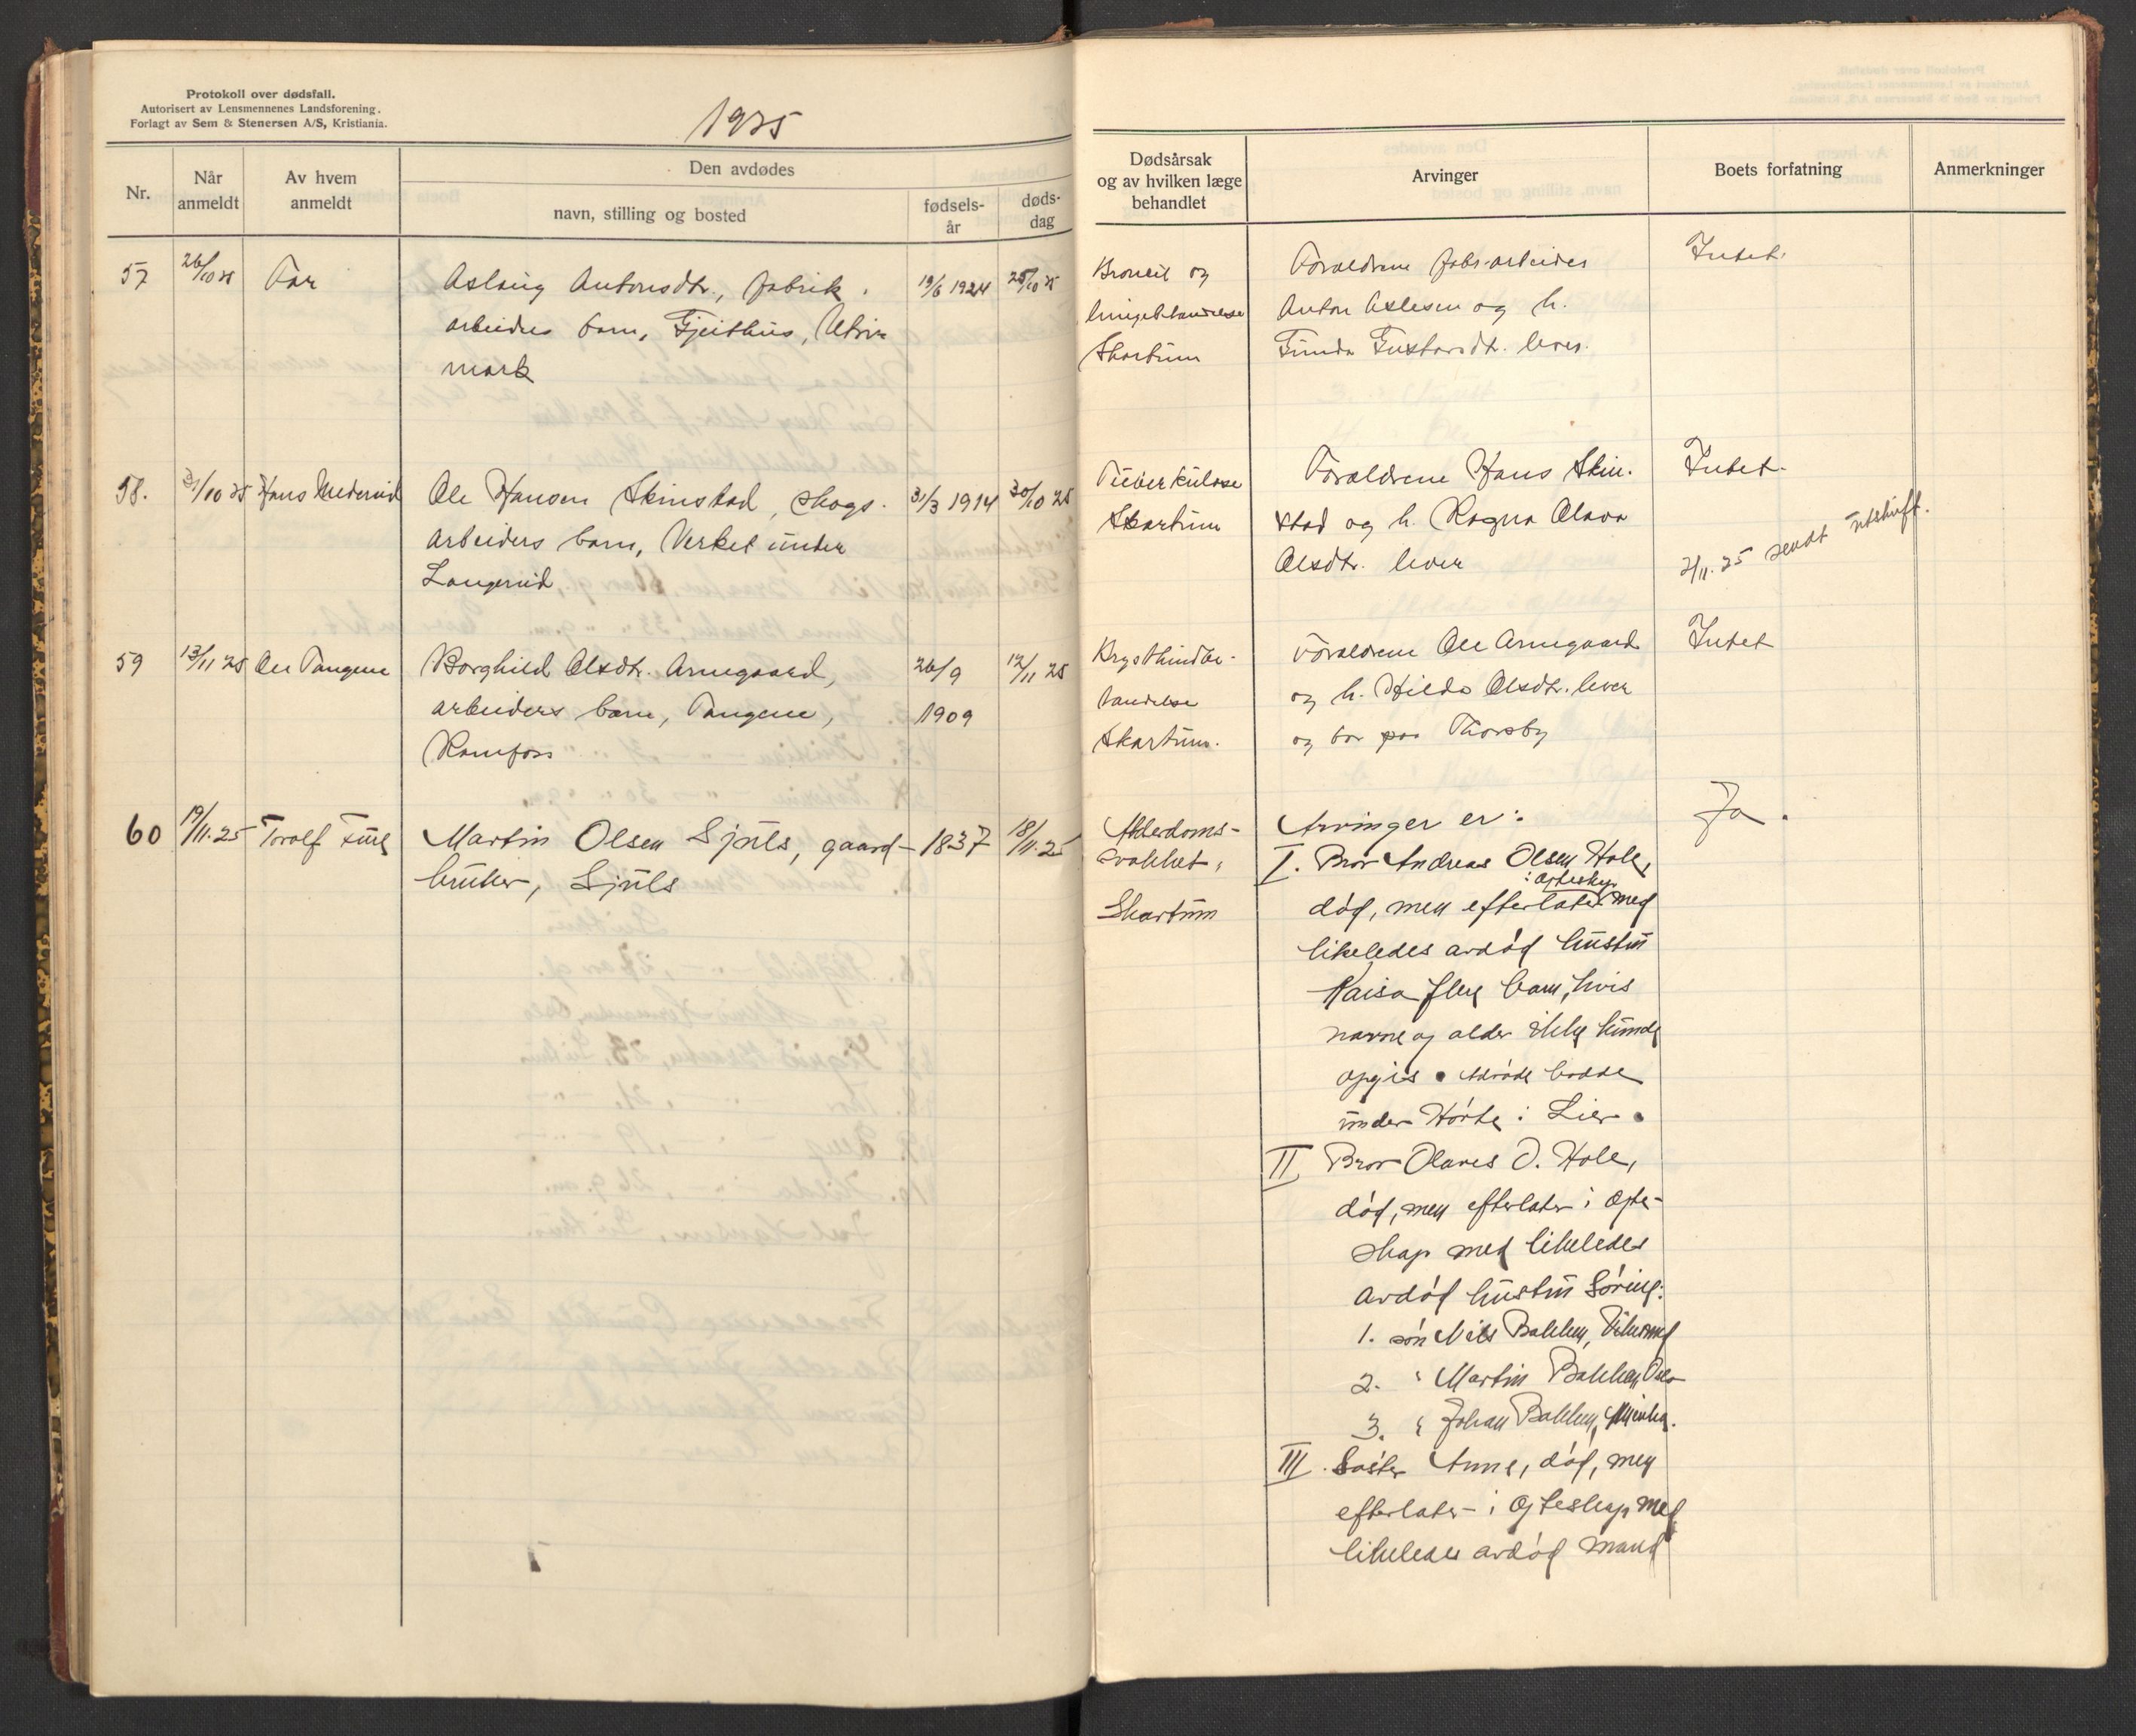 Protokoll over dødsfall.
Autorisert av Lensmennenes Landsforening.
Forlagt av Sem & Stenersen A/S, Kristiania.
1925
Nr.
Når anmeldt
Av hvem anmeldt
Den avdødes
navn, stilling og bosted
fødsels-år
døds-dag
Dødsårsak og av hvilken læge behandlet
Arvinger
Boets forfatning
Anmerkninger
57
26/10 25
Far
Aslaug Antonsdtr., fabrik.
arbeiders barn, Gjeithus,
mark
19/6 1924
25/10 25
Broncit og
lungebetændelse
Skartum
Forældrene fabr.arbeider
Anton Aslesen og h.
Gunda Gustavsdtr. lever.
Intet.
58.
31/10 25
Hans
Ole Hansen Skinstad, skogs.
arbeiders barn, Verket under
Langerud
31/3 1914
30/10 25
Tuberkulose
Skartum
Forældrene Hans Skin.
stad og h. Ragna Olava
Olsdtr. lever
Intet.
2/11.25 sendt utskrift.
59
13/11 25
Ole Tangene
Borghild Olsdtr. Arnegaard,
arbeiders barn, Tangene,
Ramfoss
26/9
1909
12/11 25
Brysthindbe-
tændelse
Skartum.
Forældrene Ole Arnegaard
og h. Hilda Olsdtr. lever
og bor paa Thorsby
Intet
60
19/11.25
Torolf
Martin Olsen Sjuls, gaard-
bruker, Sjuls
1837
18/11.25
Alderdoms-
svakhet,
Skartum
Ja.
Arvinger er:
I. Bror Andreas Olsen Hole,
i egteskp.
død, men efterlater med
likeledes avdød hustru
Kaisa flere barn, hvis
navne og alder ikke kunde
opgis. Avdøde bodde
under Hørte i Lier.
II Bror Olaves O. Hole,
død, men efterlater i egte-
skap med likeledes
avdød hustru Sørine:
1. søn Nils Bakken, Vikersund
2. " Martin Bakken, Oslo
3. " Johan Bakken,
III. Søster Anne, død, men
efterlater i egteskap med
likeledes avdød mand